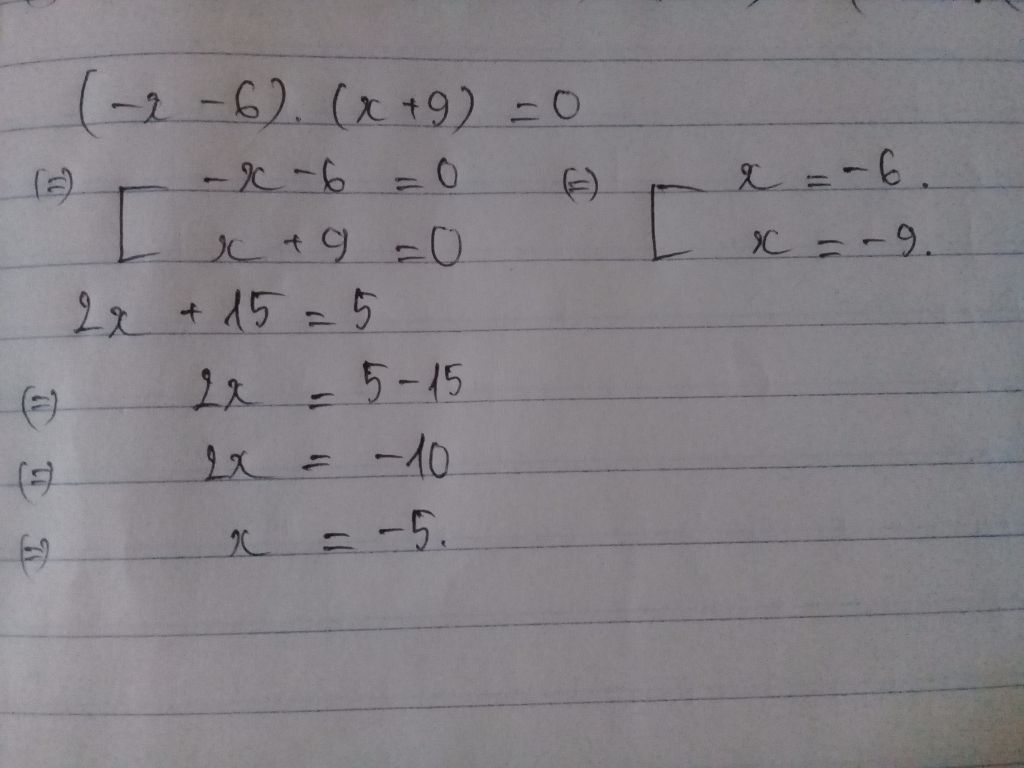 (-x - 6). (x + 9) = 0
(=) [ -x - 6 = 0 (=) [ x = -6.
x + 9 = 0 x = -9.
2x + 15 = 5
(=) 2x = 5 - 15
(=) 2x = -10
(=) x = -5.